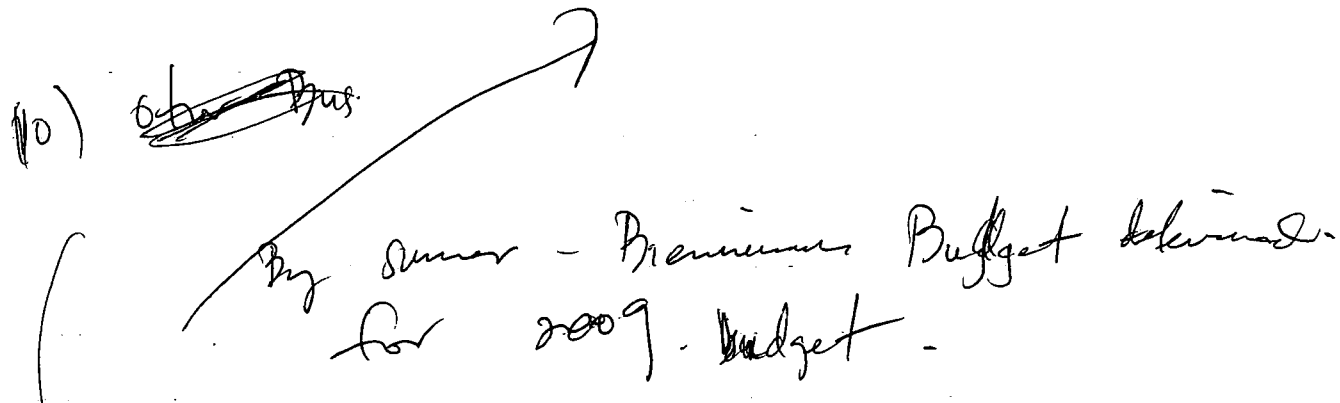 10) Other Bus.
By summer - Biennium Budget determined.
for 2009. budget.